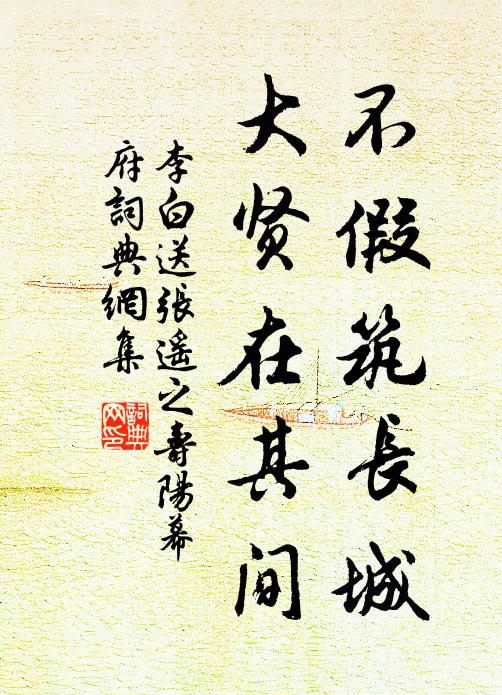 不假筑長城
大贤在其间
李白送張遥之壽陽幕
府詞典網集
詞典
网印